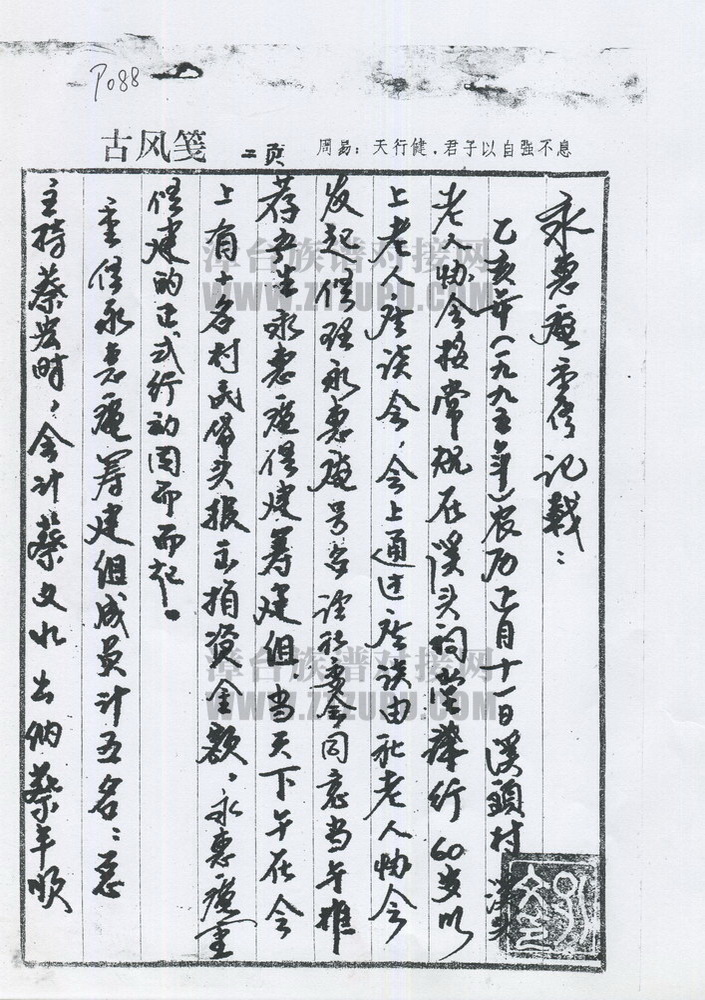 P088
古风笺 二页 周易：天行健，君子以自强不息
永惠庵重修记载：
乙亥年（一九九五年）农历正月十一日溪頭村溪头
老人协会按常规在溪头祠堂举行60岁以
上老人座谈会，会上通过座谈由社老人协会
发起修理永惠庵号召 社委会同意当午推
荐五生永惠庵修建筹建组，当天下午在会
上有十名村民带头报出捐资金额，永惠庵重
修建的正式行动因而而起。
重修永惠庵筹建组成员计五名：总
主持蔡 时，会计蔡文水出纳蔡平顺
漳台族谱对接网
WWW.ZTZUPU.COM
漳台族谱对接网
WWW.ZTZUPU.COM